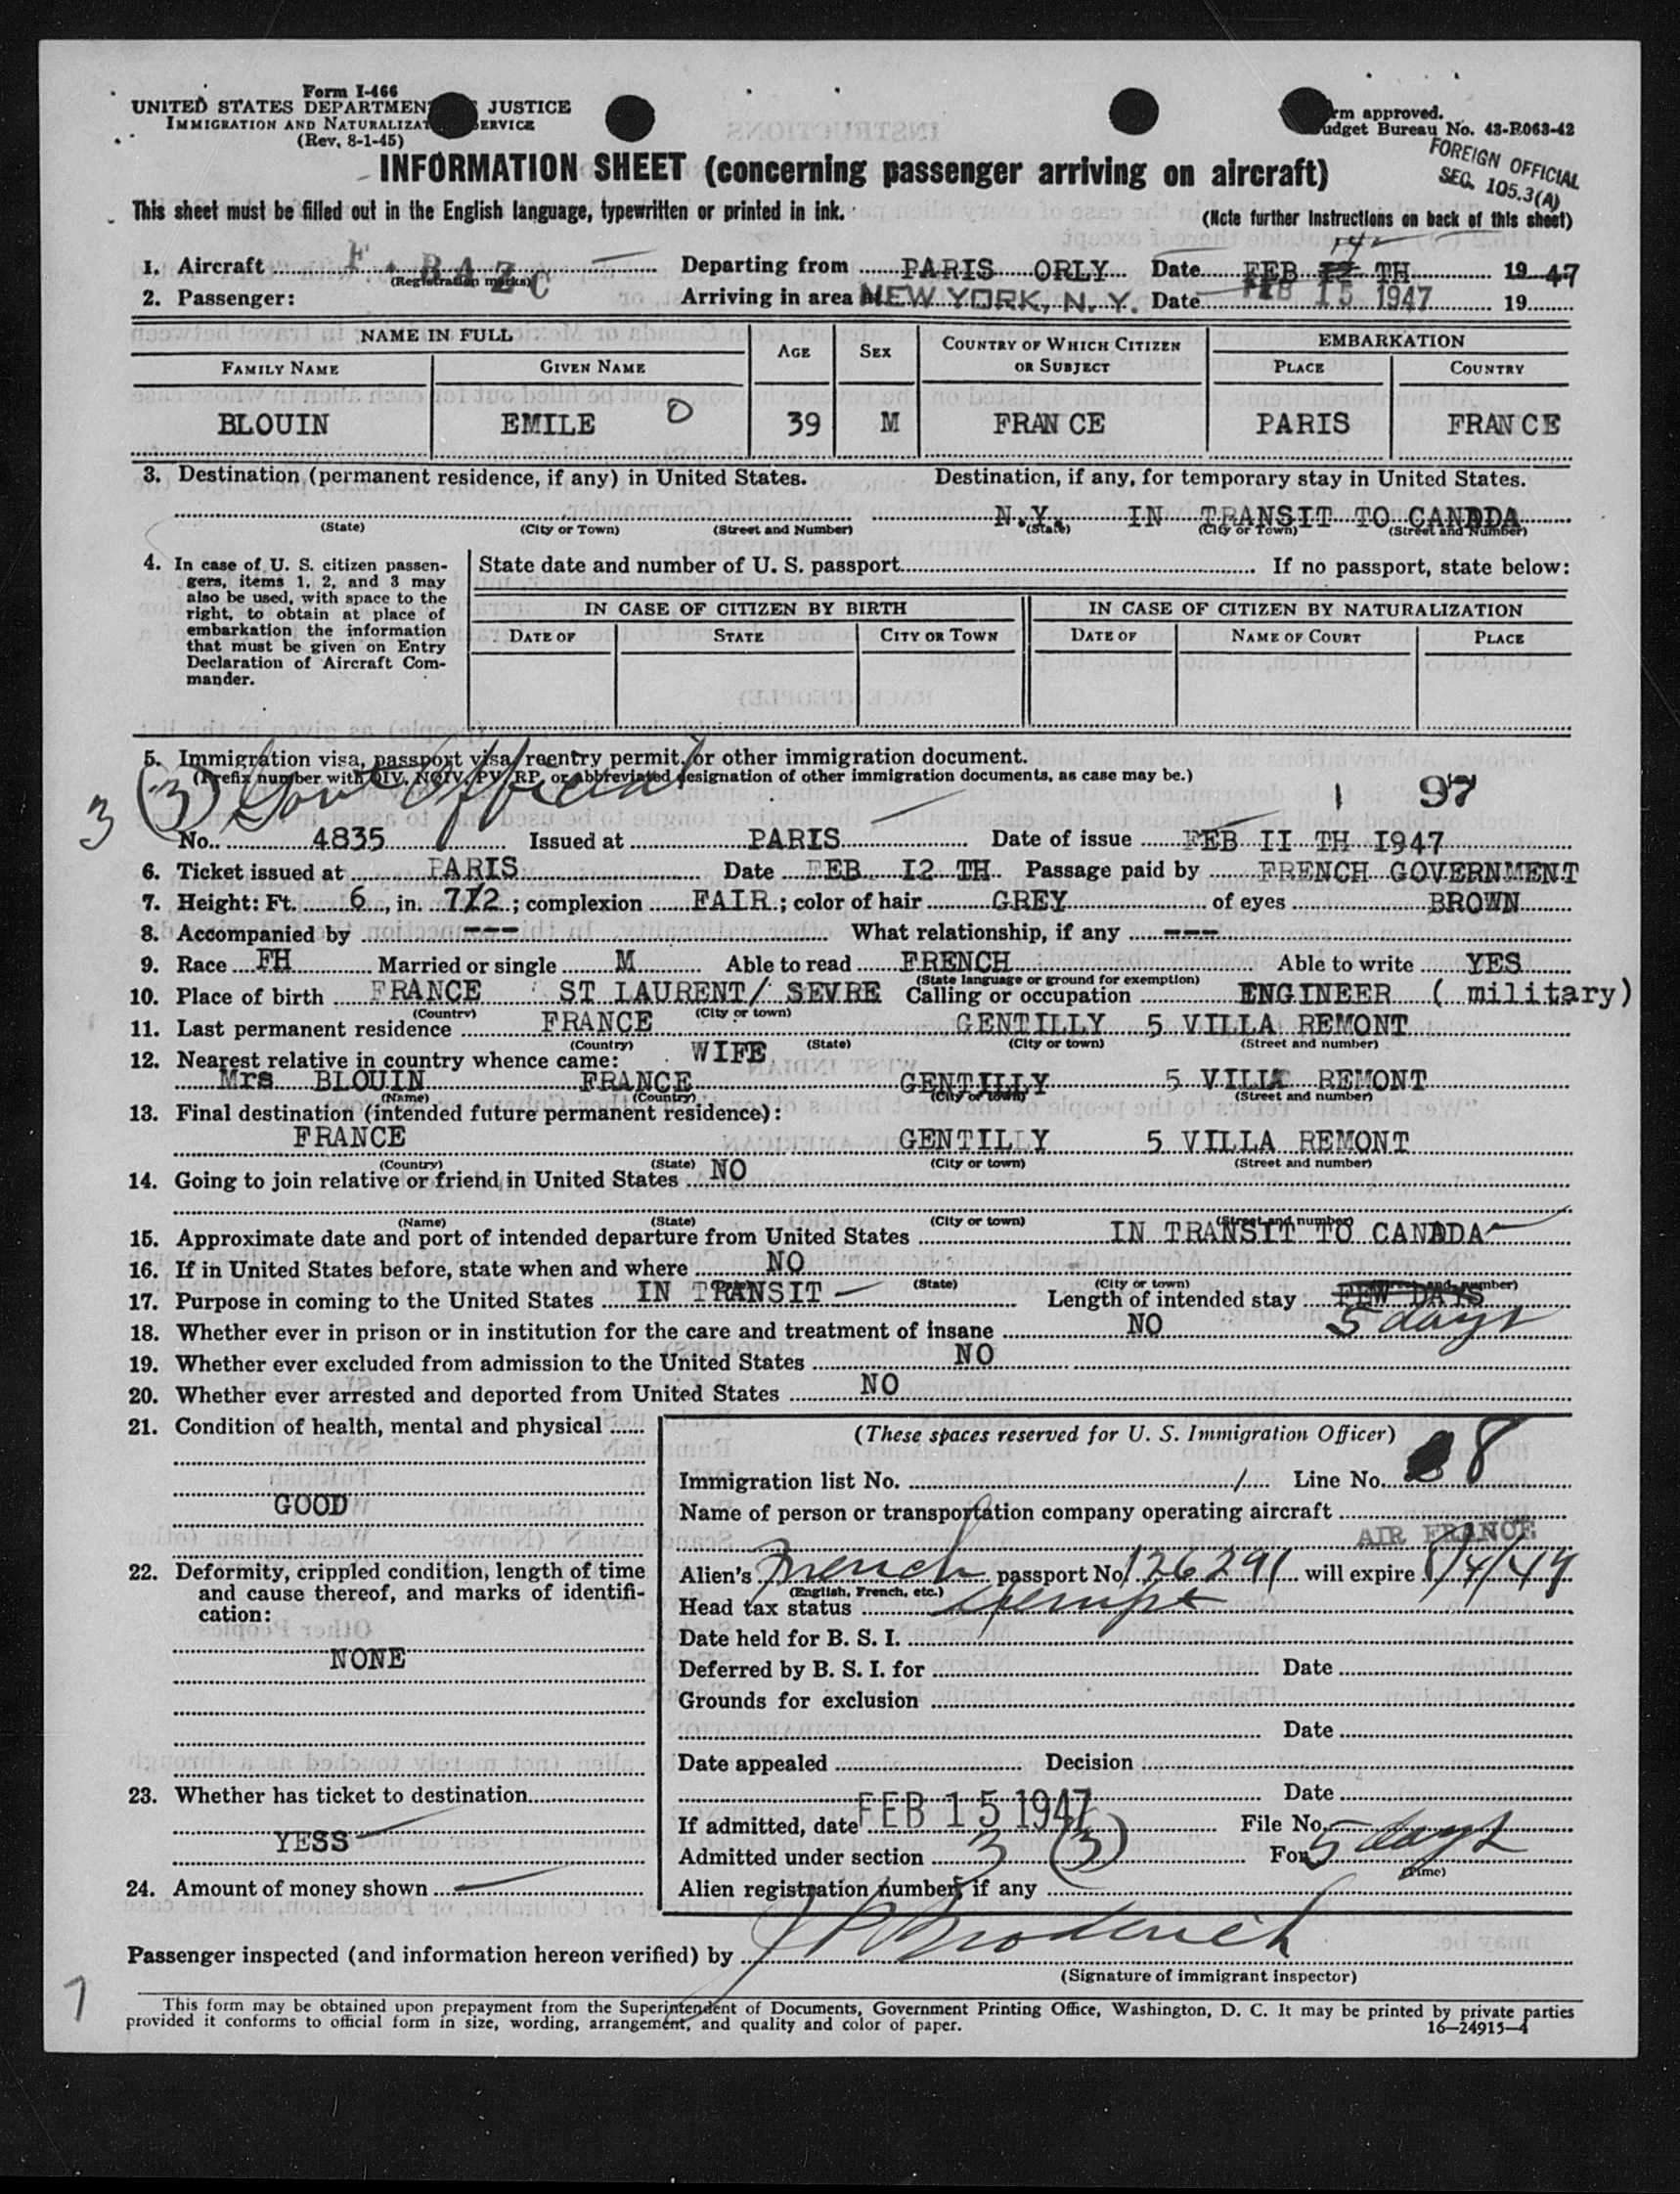 Form I-466
UNITED STATES DEPARTMENT JUSTICE
IMMIGRATION AND NATURALIZAT SERVICE
(Rev. 8-1-45)
rm approved.
udget Bureau No. 43-R063-42
FOREIGN OFFICIAL
SEC. 105.3(A)
INFORMATION SHEET (concerning passenger arriving on aircraft)
This sheet must be filled out in the English language, typewritten or printed in ink. (Note further instructions on back of this sheet)
1. Aircraft F. BAZC Departing from PARIS ORLY Date FEB 14 TH 1947
(Registration marks)
2. Passenger: Arriving in area at NEW YORK, N. Y. Date FEB 15 1947 19
NAME IN FULL AGE SEX COUNTRY OF WHICH CITIZEN OR SUBJECT EMBARKATION
FAMILY NAME GIVEN NAME PLACE COUNTRY
BLOUIN EMILE O 39 M FRAN CE PARIS FRAN CE
3. Destination (permanent residence, if any) in United States. Destination, if any, for temporary stay in United States.
N.Y. IN TRANSIT TO CANDDA
(State) (City or Town) (Street and Number) (State) (City or Town) (Street and Number)
4. In case of U. S. citizen passengers, items 1, 2, and 3 may also be used, with space to the right, to obtain at place of embarkation the information that must be given on Entry Declaration of Aircraft Commander.
State date and number of U. S. passport If no passport, state below:
IN CASE OF CITIZEN BY BIRTH IN CASE OF CITIZEN BY NATURALIZATION
DATE OF STATE CITY OR TOWN DATE OF NAME OF COURT PLACE
5. Immigration visa, passport visa, reentry permit, or other immigration document.
(Prefix number with QIV, NQIV, PV, RP, or abbreviated designation of other immigration documents, as case may be.)
3 (3) Govt Official 1 97
No. 4835 Issued at PARIS Date of issue FEB II TH I947
6. Ticket issued at PARIS Date FEB I2 TH Passage paid by FRENCH GOVERNMENT
7. Height: Ft. 6, in. 7I/2; complexion FAIR; color of hair GREY of eyes BROWN
8. Accompanied by --- What relationship, if any ---
9. Race FH Married or single M Able to read FRENCH Able to write YES
(State language or ground for exemption)
10. Place of birth FRANCE ST LAURENT/ SEVRE Calling or occupation ENGINEER ( military)
(Country) (City or town)
11. Last permanent residence FRANCE GENTILLY 5 VILLA REMONT
(Country) (State) (City or town) (Street and number)
12. Nearest relative in country whence came: WIFE
Mrs BLOUIN FRANCE GENTILLY 5 VILLA REMONT
(Name) (Country) (City or town) (Street and number)
13. Final destination (intended future permanent residence):
FRANCE GENTILLY 5 VILLA REMONT
(Country) (State) (City or town) (Street and number)
14. Going to join relative or friend in United States NO
(Name) (State) (City or town) (Street and number)
15. Approximate date and port of intended departure from United States IN TRANSIT TO CANADA
16. If in United States before, state when and where NO
(Date) (State) (City or town) (Street and number)
17. Purpose in coming to the United States IN TRANSIT Length of intended stay FEW DAYS
5 days
18. Whether ever in prison or in institution for the care and treatment of insane NO
19. Whether ever excluded from admission to the United States NO
20. Whether ever arrested and deported from United States NO
21. Condition of health, mental and physical
GOOD
22. Deformity, crippled condition, length of time and cause thereof, and marks of identification:
NONE
23. Whether has ticket to destination
YESS
24. Amount of money shown
(These spaces reserved for U. S. Immigration Officer)
Immigration list No. 1 Line No. 8
Name of person or transportation company operating aircraft
AIR FRANCE
Alien's French passport No. 126291 will expire 1/4/49
(English, French, etc.)
Head tax status exempt
Date held for B. S. I.
Deferred by B. S. I. for Date
Grounds for exclusion
Date
Date appealed Decision
Date
If admitted, date FEB 15 1947 File No.
Admitted under section 3 (3) For 5 days
(Time)
Alien registration number, if any
Passenger inspected (and information hereon verified) by
(Signature of immigrant inspector)
7
This form may be obtained upon prepayment from the Superintendent of Documents, Government Printing Office, Washington, D. C. It may be printed by private parties
provided it conforms to official form in size, wording, arrangement, and quality and color of paper.
16—24915-4